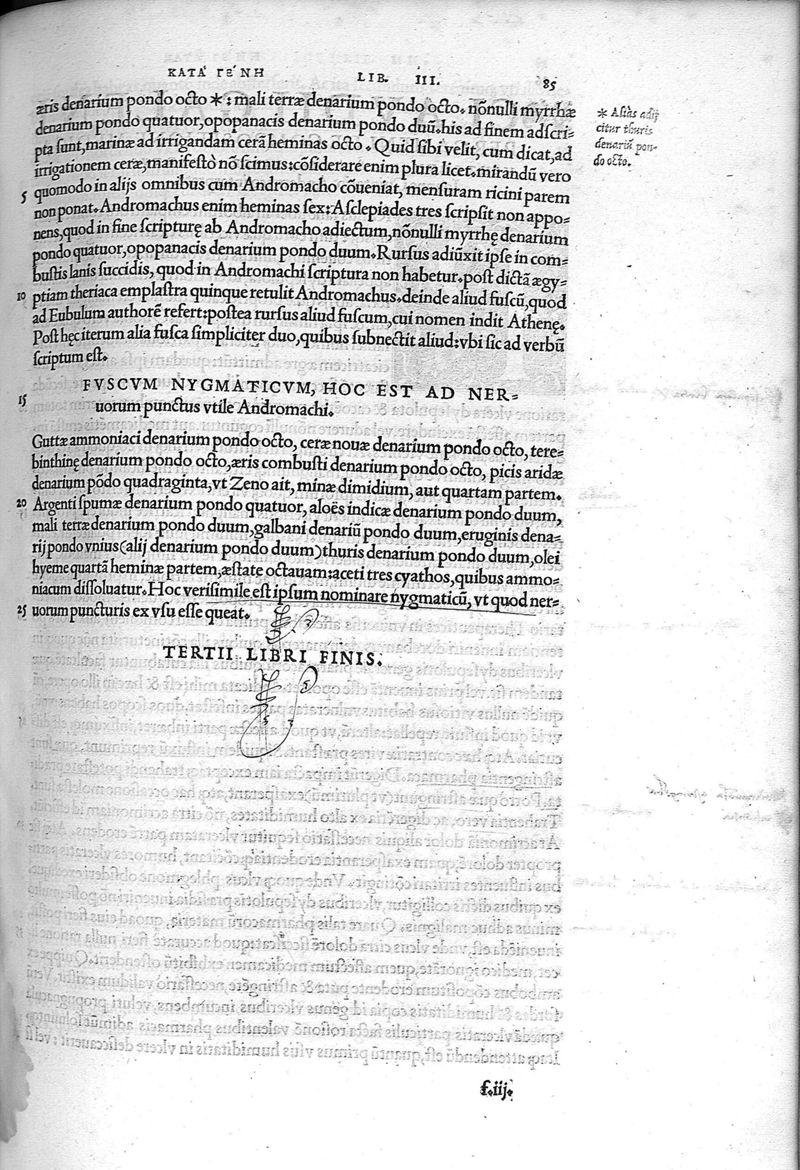 ΚΑΤΆ ΓΈΝΗ LIB. III. 85
æris denarium pondo octo *: mali terræ denarium pondo octo. nõnulli myrrhæ
denarium pondo quatuor, opopanacis denarium pondo duũ. his ad finem adscri-
pta sunt, marinæ ad irrigandam cerã heminas octo. Quid sibi velit, cum dicat, ad
irrigationem ceræ, manifesto nõ scimus: cõsiderare enim plura licet. mirandũ vero
5 quomodo in alijs omnibus cum Andromacho cõueniat, mensuram ricini parem
non ponat. Andromachus enim heminas sex: Asclepiades tres scripsit non appo-
nens, quod in fine scripturę ab Andromacho adiectum, nõnulli myrrhę denarium
pondo quatuor, opopanacis denarium pondo duum. Rursus adiũxit ipse in com-
bustis lanis succidis, quod in Andromachi scriptura non habetur. post dictã ægy-
10 ptiam theriaca emplastra quinque retulit Andromachus. deinde aliud fuscũ, quod
ad Eubulum authorẽ refert: postea rursus aliud fuscum, cui nomen indit Athenę.
Post hęc iterum alia fusca simpliciter duo, quibus subnectit aliud: vbi sic ad verbũ
scriptum est.
* Asias adij
citur thuris
denariũ pon-
do octo.
FVSCVM NYGMATICVM, HOC EST AD NER-
15 uorum punctus vtile Andromachi.
Guttæ ammoniaci denarium pondo octo, ceræ nouæ denarium pondo octo, tere-
binthinę denarium pondo octo, æris combusti denarium pondo octo, picis aridæ
denarium põdo quadraginta, vt Zeno ait, minæ dimidium, aut quartam partem.
20 Argenti spumæ denarium pondo quatuor, aloës indicæ denarium pondo duum,
mali terræ denarium pondo duum, galbani denariũ pondo duum, eruginis dena-
rij pondo vnius (alij denarium pondo duum) thuris denarium pondo duum, olei
hyeme quartã heminæ partem, æstate octauam: aceti tres cyathos, quibus ammo-
niacum dissoluatur. Hoc verisimile est ipsum nominare nygmaticũ, vt quod ner-
25 uorum puncturis ex vsu esse queat.
TERTII LIBRI FINIS.
f.iij.